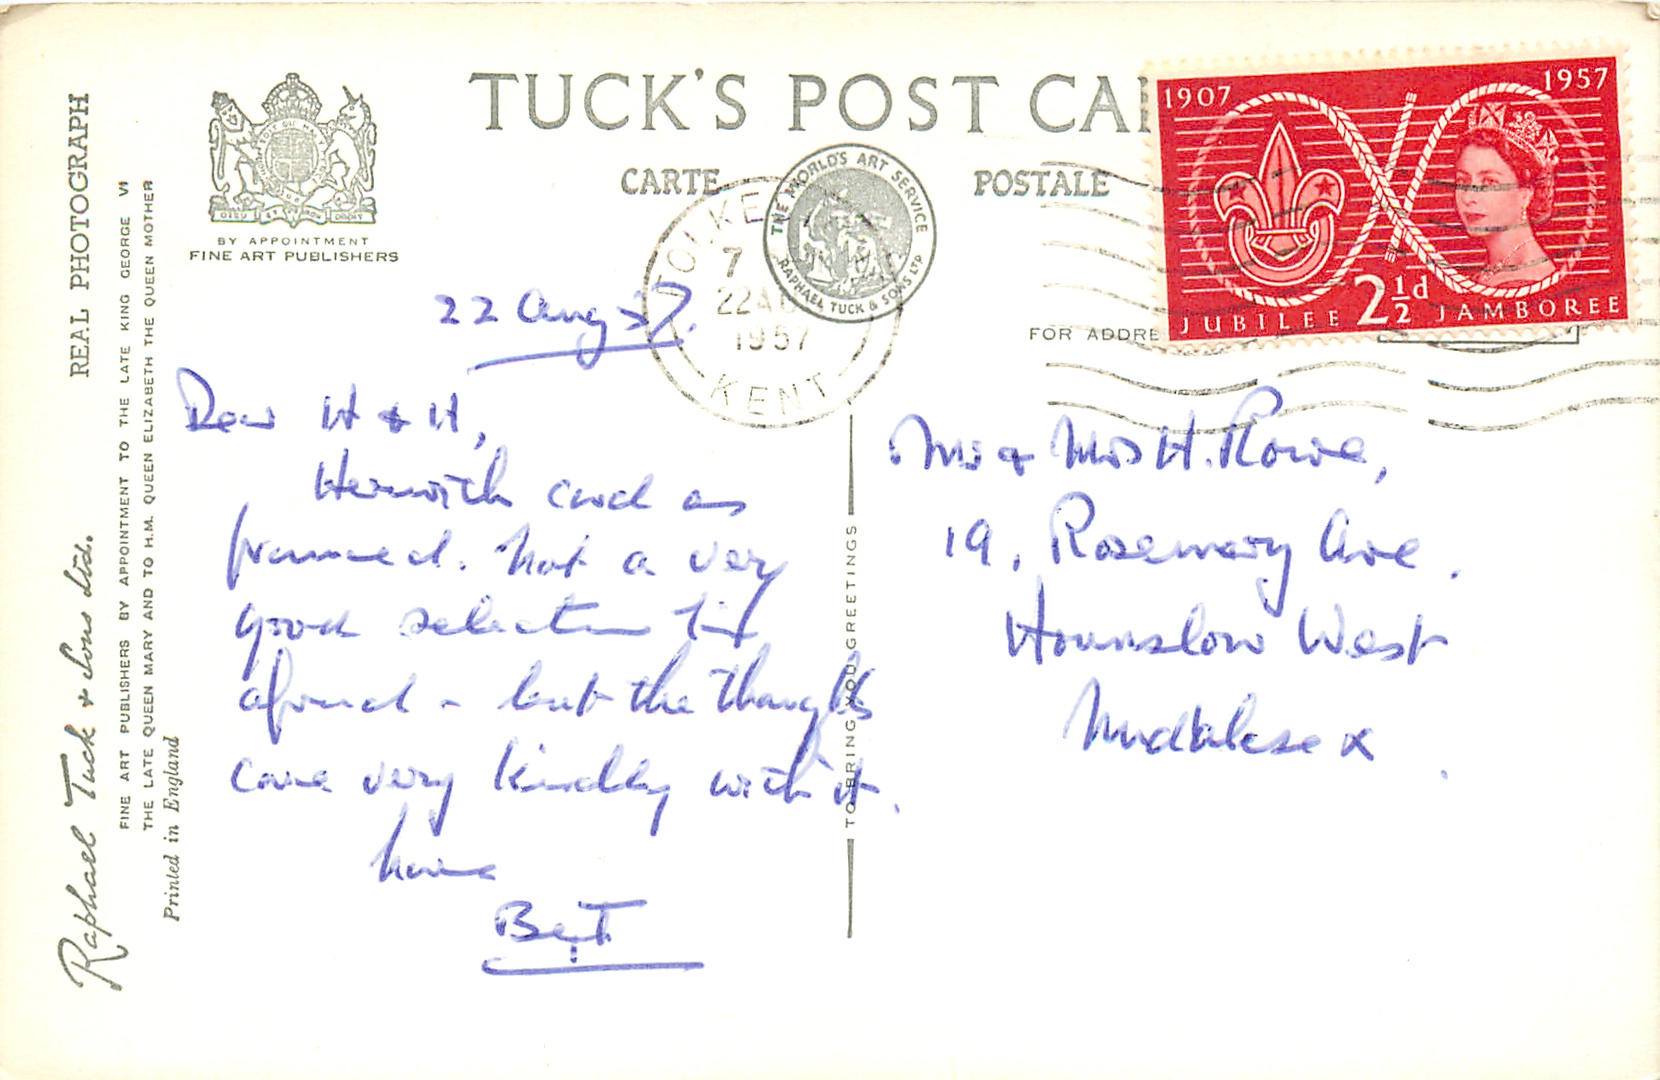 TUCK'S POST CAR
CARTE POSTALE
BY APPOINTMENT
FINE ART PUBLISHERS
THE WORLD'S ART SERVICE
RAPHAEL TUCK & SONS LTD
FOLKE
7
22 AU
1957
KENT
1907 1957
JUBILEE 2½d JAMBOREE
FOR ADDRE
REAL PHOTOGRAPH
Raphael Tuck & Sons Ltd.
FINE ART PUBLISHERS BY APPOINTMENT TO THE LATE KING GEORGE VI
THE LATE QUEEN MARY AND TO H.M. QUEEN ELIZABETH THE QUEEN MOTHER
Printed in England
TO BRING YOU GREETINGS
22 Aug 57.
Dear H & H,
Herwith card as
promised. Not a very
good selection I'm
afraid - but the thoughts
come very kindly with it.
love
Bert
Mr & Mrs H. Rowe,
19, Rosemary Ave.
Hounslow West
Middlesex.